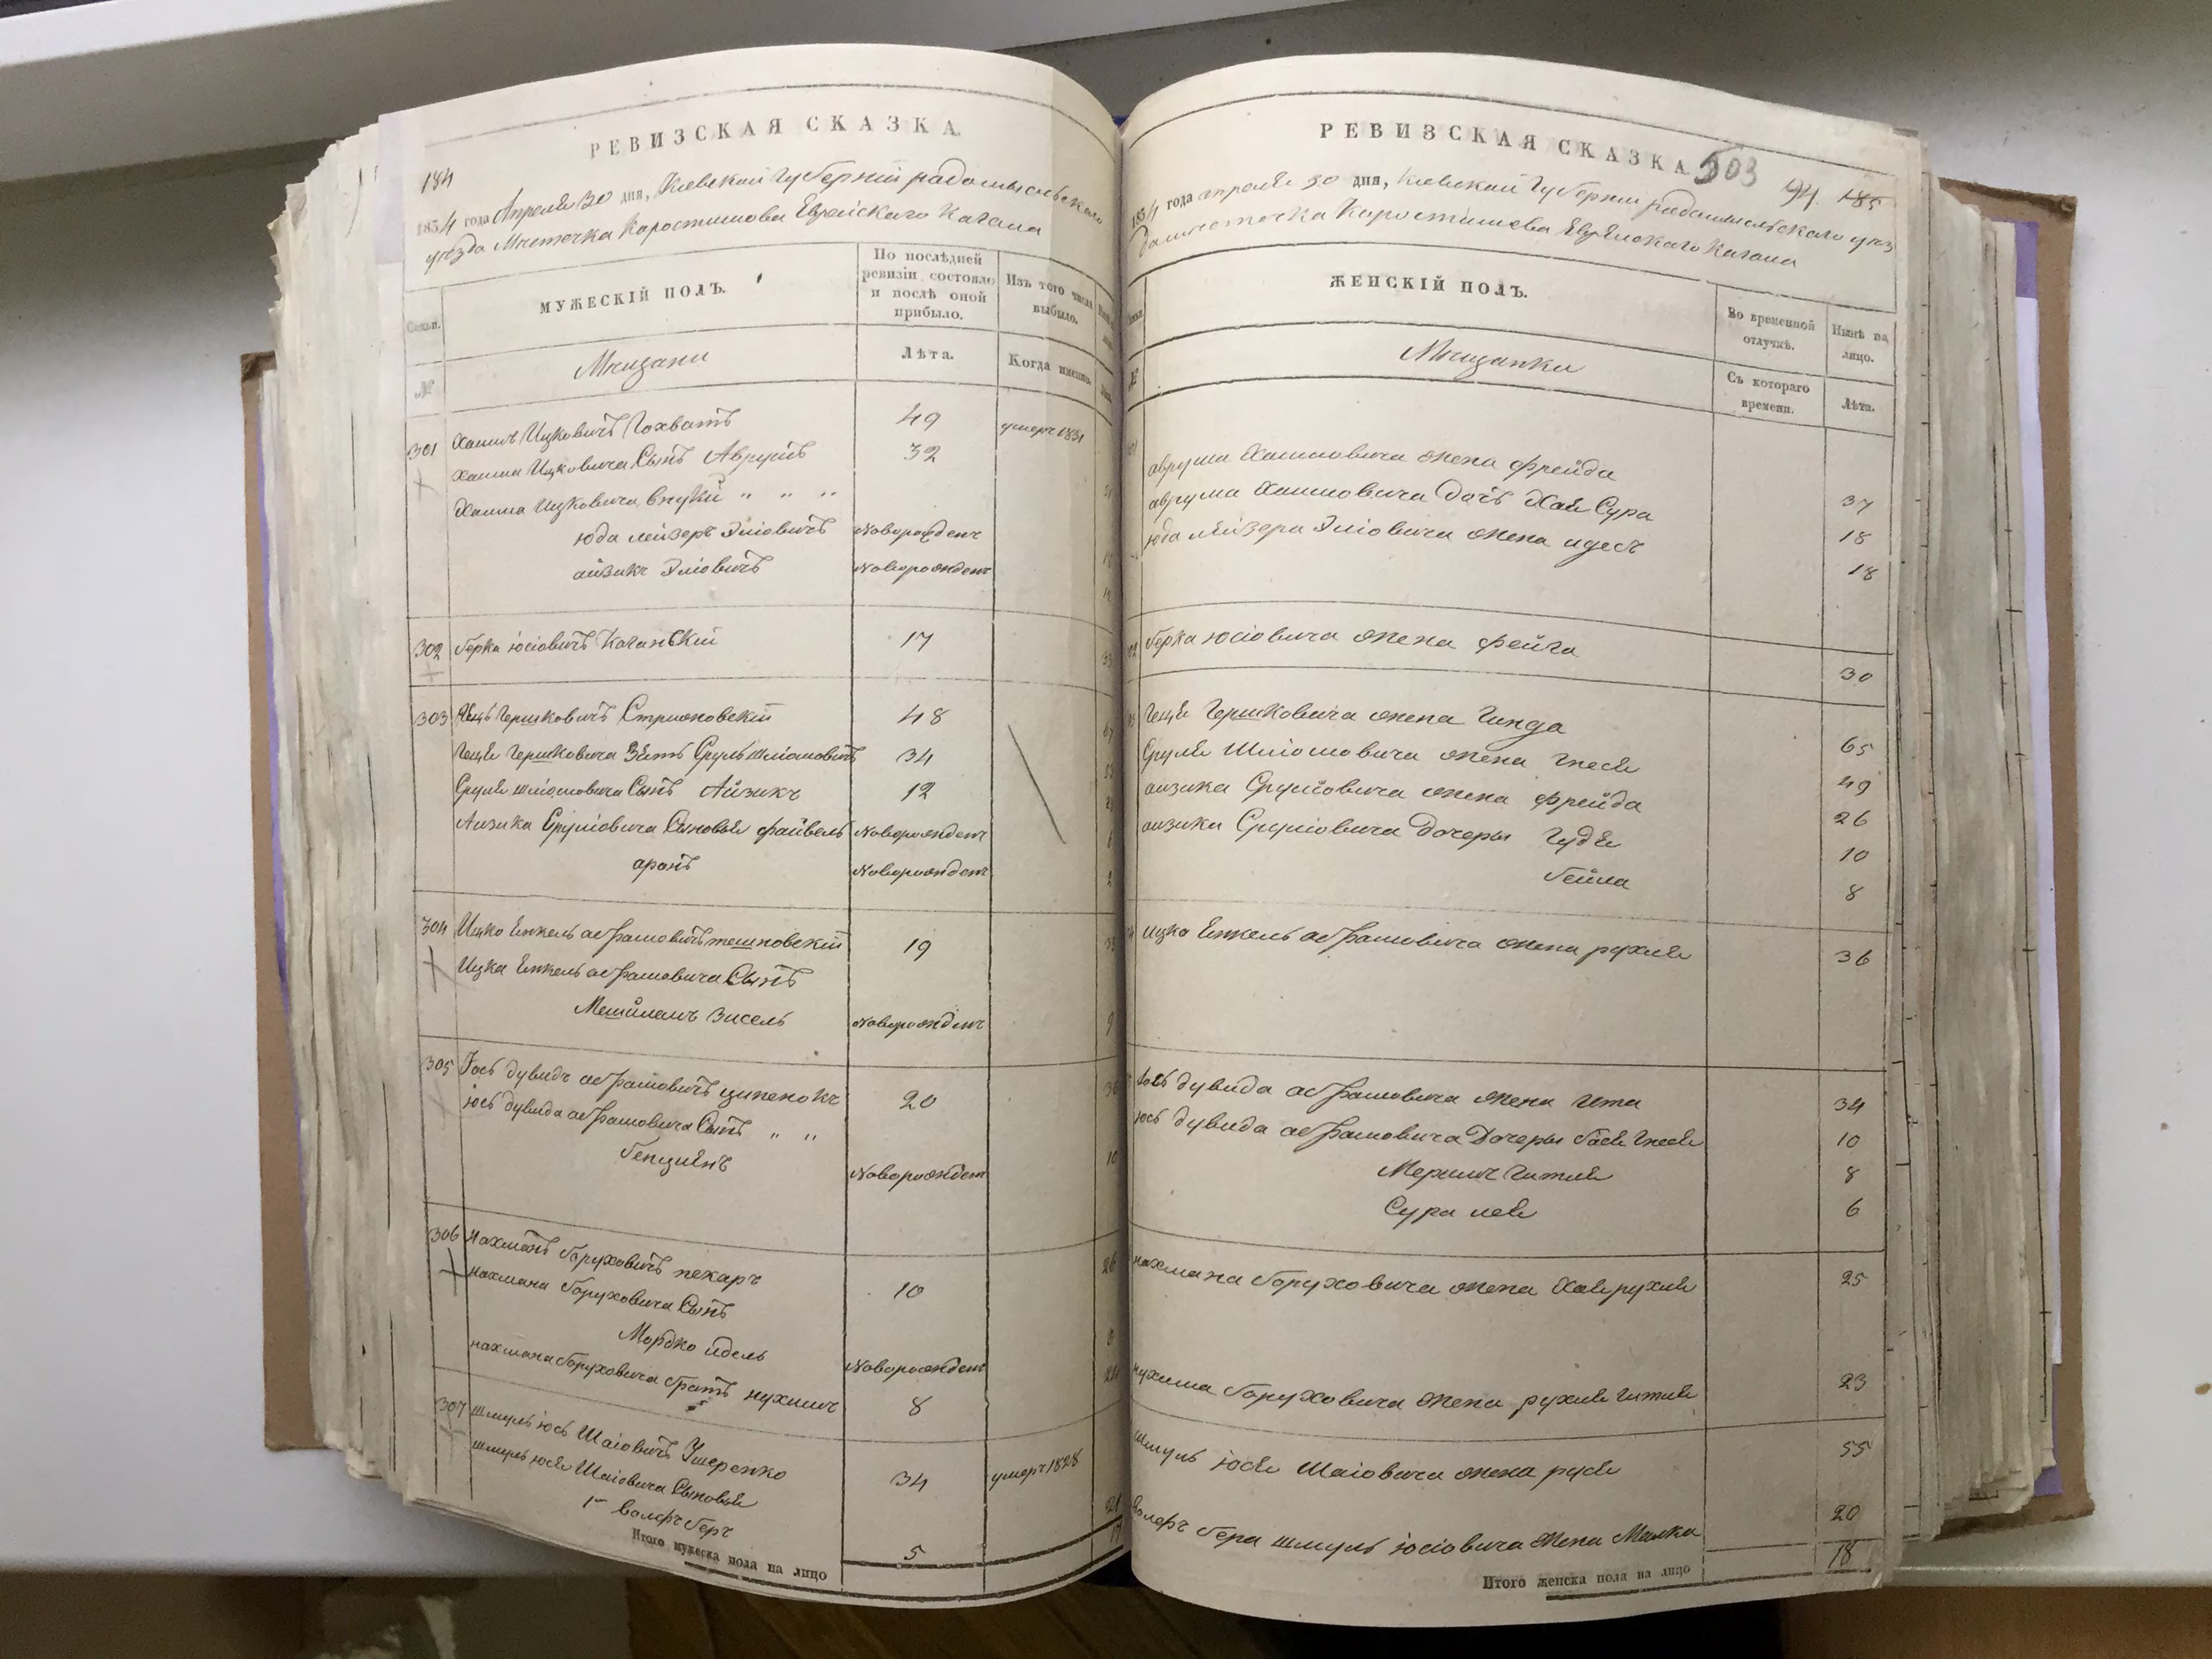 РЕВИЗСКАЯ СКАЗКА.
184
1834 года Апреля 30 дня, Киевской Губернии радомысльского
уезда Местечка Коростишова Еврейского Кагала
Семьи.
МУЖЕСКІЙ ПОЛЪ.
По послѣдней ревизіи состояло и послѣ оной прибыло.
Изъ того числа выбыло.
№
Мещани
Лѣта.
Когда именно.
301 Хаимъ Ицковичъ Гохватъ 49 умеръ 1831
Хаима Ицковича Сынъ Аврумъ 32
Хаима Ицковича Внуки " " "
Юда лейзеръ Эліовичъ Новорожденъ
айзикъ Эліовичъ Новорожденъ
302 берка юсіовичъ Каганскій 17
303 Гершковичъ Стрижовскій 48
Гершковича Зять Сруль шліомовичъ 34
Сруля шліомовича Сынъ Айзикъ 12
Аизика Сруліовича Сыновья файвель Новорожденъ
аронъ Новорожденъ 2
304 Ицко Енкель абрамовичъ тешновскій 19
Ицка Енкель абрамовича Сынъ
Мешилемъ Зисель Новорожденъ 9
305 Іось дувидъ абрамовичъ ципенокъ 20
юсь дувида абрамовича Сынъ " "
бенціянъ Новорожденъ 10
306 Нахманъ боруховичъ пекаръ 10 26
нахмана боруховича Сынъ
Мордко идель Новорожденъ
нахмана боруховича братъ нухимъ 8
307 шмуль юсь Шаіовичъ Умеренко 34 умеръ 1828
шмуль юся Шаіовича Сыновья
1й волфъ беръ 21
Итого мужеска пола на лицо 5 17
РЕВИЗСКАЯ СКАЗКА.
503 94. 185
1834 года апреля 30 дня, Киевской Губернии радомысльского уез
да местечка Коростишева Еврейского Кагала
ЖЕНСКІЙ ПОЛЪ.
Во временной отлучкѣ.
Нынѣ на лицо.
№
Мещанки
Съ котораго времени.
Лѣта.
аврума Хаимовича жена фрейда 37
аврума Хаимовича дочь Хая Сура 18
юда лейзера Эліовича жена идесъ 18
берка юсіовича жена фейга 30
Гершковича жена Гинда 65
Сруля Шліомовича жена гнеся 49
аизика Сруліовича жена фрейда 26
аизика Сруліовича дочеры гудя 10
бейла 8
ицка Енкель абрамовича жена рухля 36
юсь дувида абрамовича жена ита 34
юсь дувида абрамовича дочеры бася гнеся 10
Меримъ гитля 8
Сура лея 6
нахмана боруховича жена Хая рухля 25
нухима боруховича жена рухля гитля 23
шмуль юся Шаіовича жена руся 55
волфъ бера шмуль юсіовича жена Малка 20
Итого женска пола на лицо 18